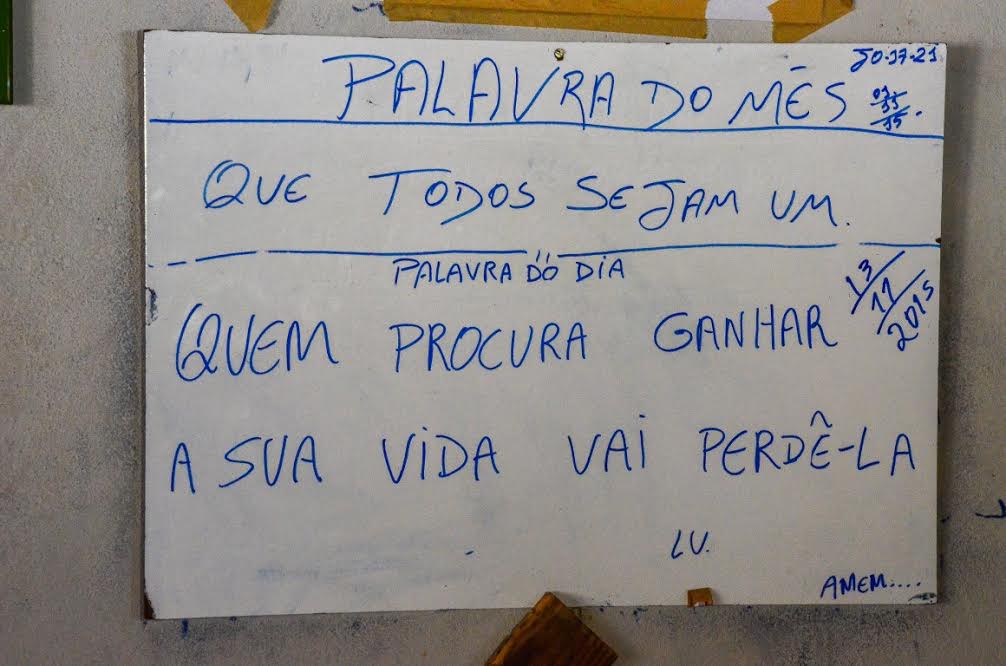 PALAVRA DO MÊS JO-17-21
QUE TODOS SEJAM UM.
PALAVRA DO DIA
13/11/2015
QUEM PROCURA GANHAR
A SUA VIDA VAI PERDÊ-LA
LU.
AMEM....